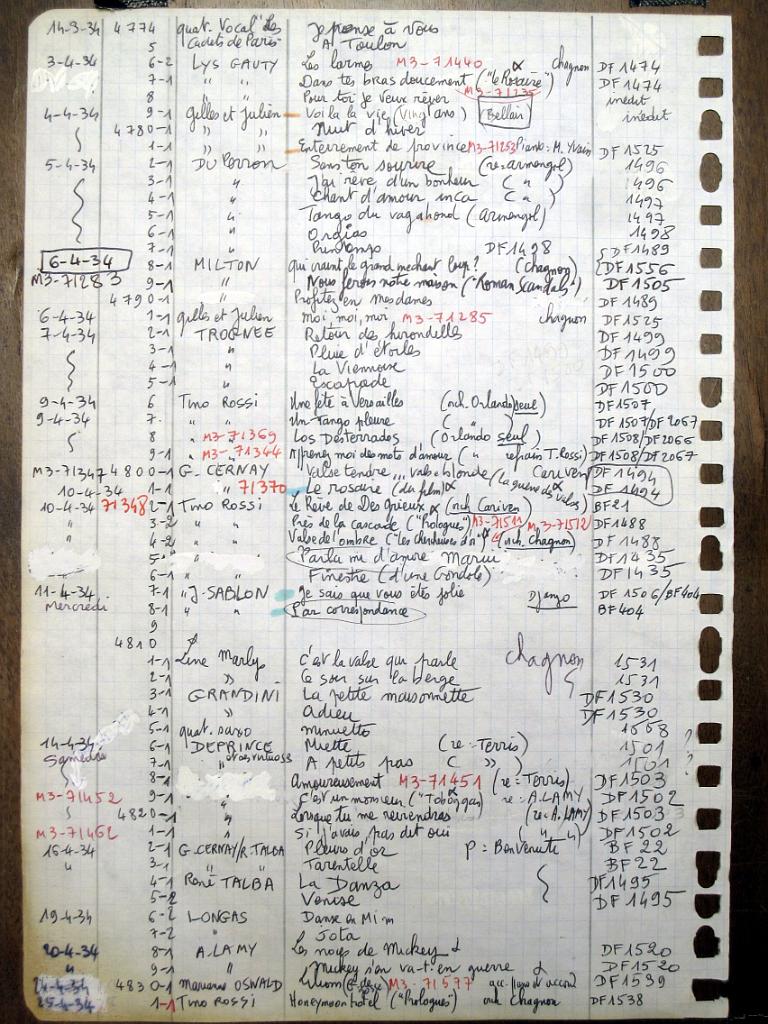 14-3-34 4774 quat. Vocal des Je pense à vous
5 Cadets de Paris A Toulon
3-4-34 6-2 LYS GAUTY Les larmes M3-71440 chagnon DF1474
7-1 " " Dans tes bras doucement ("le Rosaire") DF1474
8 " " Pour toi je veux rêver M3-71235 inédit
4-4-34 9-1 Gilles et Julien Voilà la vie (Vingt ans) Bellair inédit
4780-1 " " Nuit d'hiver
1-1 " " Enterrement de province M3-71253 Piano: M. Yvain DF1525
5-4-34 2-1 DU Perron Sans ton sourire (re: armengol) 1496
3-1 " J'ai rêvé d'un bonheur ( " ) 1496
4-1 " Chant d'amour inca ( " ) 1497
5-1 " Tango du vagabond (armengol) 1497
6-1 " 1498
7-1 " DF1498 DF1489
6-4-34 8-1 MILTON Qui craint le grand méchant loup? (chagnon) DF1556
M3-71283 9-1 " Nous ferons notre maison ("Roman Scandals") DF1505
4790-1 " Profitez en mesdames DF1489
6-4-34 1-1 Gilles et Julien Moi, moi, moi M3-71285 chagnon DF1525
7-4-34 2-1 TROGNEE Retour des hirondelles DF1499
3-1 " Pluie d'étoiles DF1499
4-1 " La Viennoise DF1500
5-1 " Escapade DF1500
9-4-34 6 Tino Rossi Une fête à Versailles (orch. Orlando seul) DF1507
9-4-34 7 " " Un Tango pleure ( " ) DF1507/DF2067
8 " M3-71369 Los Desterrados (Orlando seul) DF1508/DF2066
9-1 " M3-71344 Apprenez moi des mots d'amour ( " refrain T. Rossi) DF1508/DF2067
M3-71347 4800-1 G. CERNAY Valse tendre... valse blonde (la guerre des valses) Cariven DF1494
10-4-34 1-1 " 71370 Le rosaire (du film) DF1494
10-4-34 71348 2-1 Tino Rossi Le Rêve de Des Grieux (orch Cariven) BF21
" 3-2 " " Près de la cascade ("Prologues") M3-71511 M3-71512 DF1488
" 4-2 " " Valse de l'ombre ("Les chercheuses d'or") (orch. Chagnon) DF1488
5- " Parla mi d'amore Mariu DF1435
6-1 " " Finestre (d'une Gondole) DF1435
11-4-34 7-1 "J. SABLON Je sais que vous êtes jolie Django DF1506/BF404
Mercredi 8-1 " " Par correspondance BF404
9
4810
1-1 Line Marlys C'est la valse qui parle chagnon 1531
2-1 " Ce soir sur la berge 1531
3-1 GRANDINI La petite maisonnette DF1530
4-1 " Adieu DF1530
5-1 quat. saxo Minuetto 1668
14-4-34 6-1 DEPRINCE Miette (re: Terris) 1501 ?
Samedi 7-1 et ses virtuoses A petits pas ( " ) 1501 ?
8-1 Amoureusement M3-71451 (re: Terris) DF1503
M3-71452 9-1 " C'est un monsieur ("Toboggan") re: A. LAMY DF1502
4820-1 " Lorsque tu me reviendras (re: A. LAMY) DF1503
M3-71462 1-1 " Si j'avais pas dit oui ( " " ) DF1502
16-4-34 2-1 G. CERNAY/R. TALBA Pleurs d'or p = Bonvenute BF22
" 3-1 Tarentelle BF22
4-1 René TALBA La Danza DF1495
5-2 Venise DF1495
19-4-34 6-2 LONGAS Danse en Mi m
7-2 " Jota
20-4-34 8-1 A. LAMY Les noces de Mickey DF1520
" 9-1 " Mickey s'en va-t-en guerre DF1520
24-4-34 4830-1 Marianne OSWALD M3-71577 DF1539
25-4-34 1-1 Tino ROSSI Honeymoon hotel ("Prologues") orch Chagnon DF1538